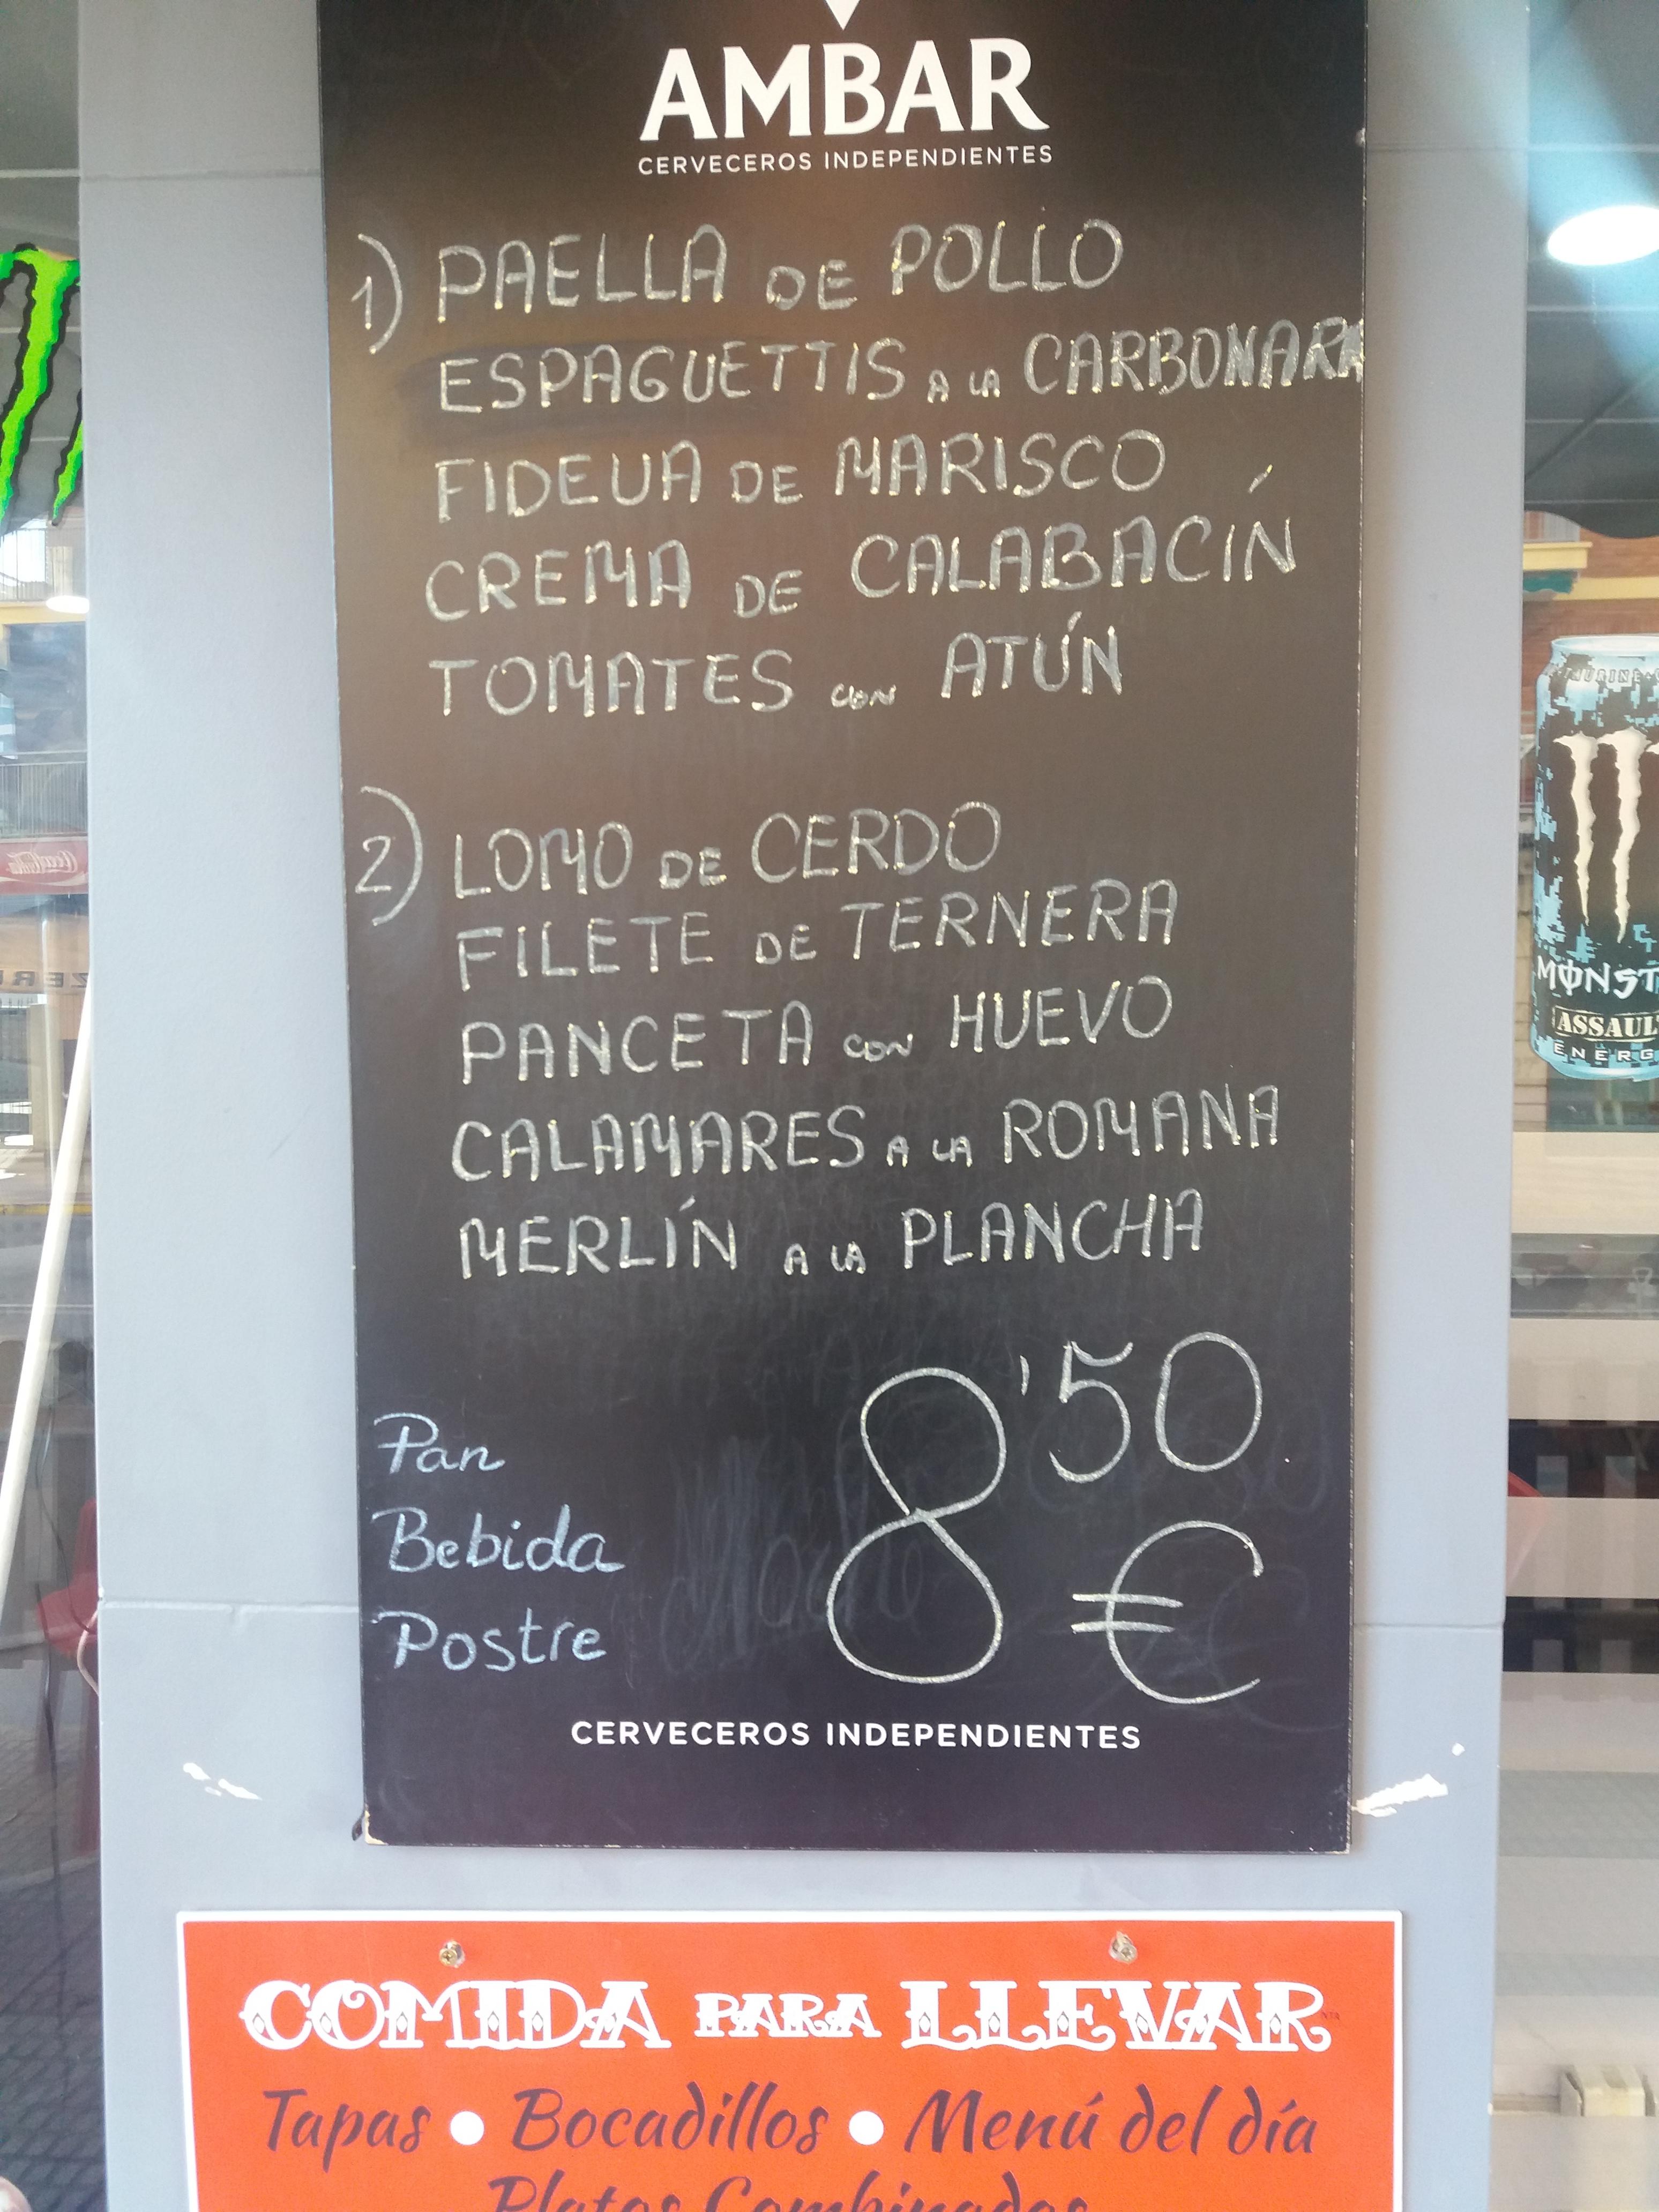 AMBAR
CERVECEROS INDEPENDIENTES
1) PAELLA DE POLLO
ESPAGUETTIS A LA CARBONARA
FIDEUA DE MARISCO
CREMA DE CALABACÍN
TOMATES CON ATÚN
2) LOMO DE CERDO
FILETE DE TERNERA
PANCETA CON HUEVO
CALAMARES A LA ROMANA
MERLÍN A LA PLANCHA
8'50
€
Pan
Bebida
Postre
CERVECEROS INDEPENDIENTES
COMIDA PARA LLEVAR
Tapas • Bocadillos • Menú del día
Platos Combinados
MONST
ASSAUL
ENERG